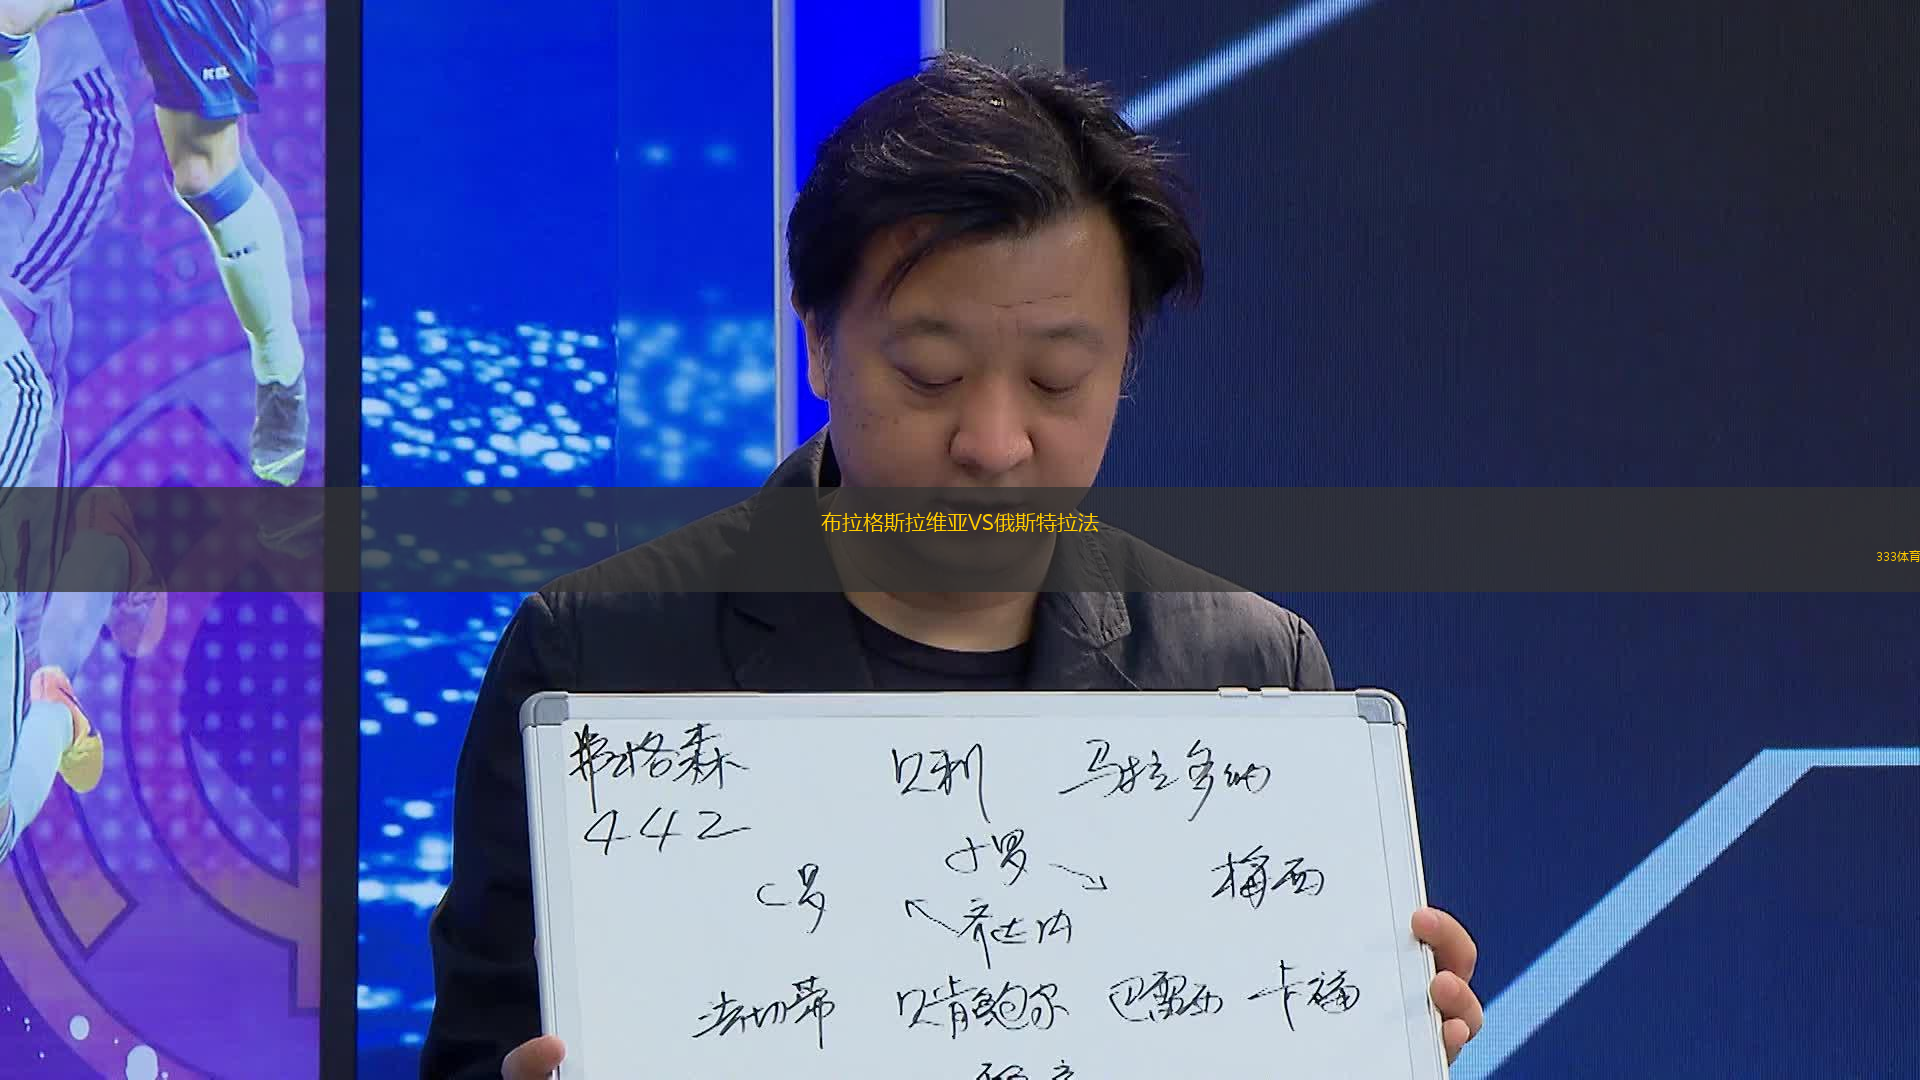 布拉格斯拉维亚VS俄斯特拉法
333体育
弗格森 贝利 马拉多纳
442
小罗
C罗 梅西
齐达内
法切蒂 贝肯鲍尔 巴雷西 卡福